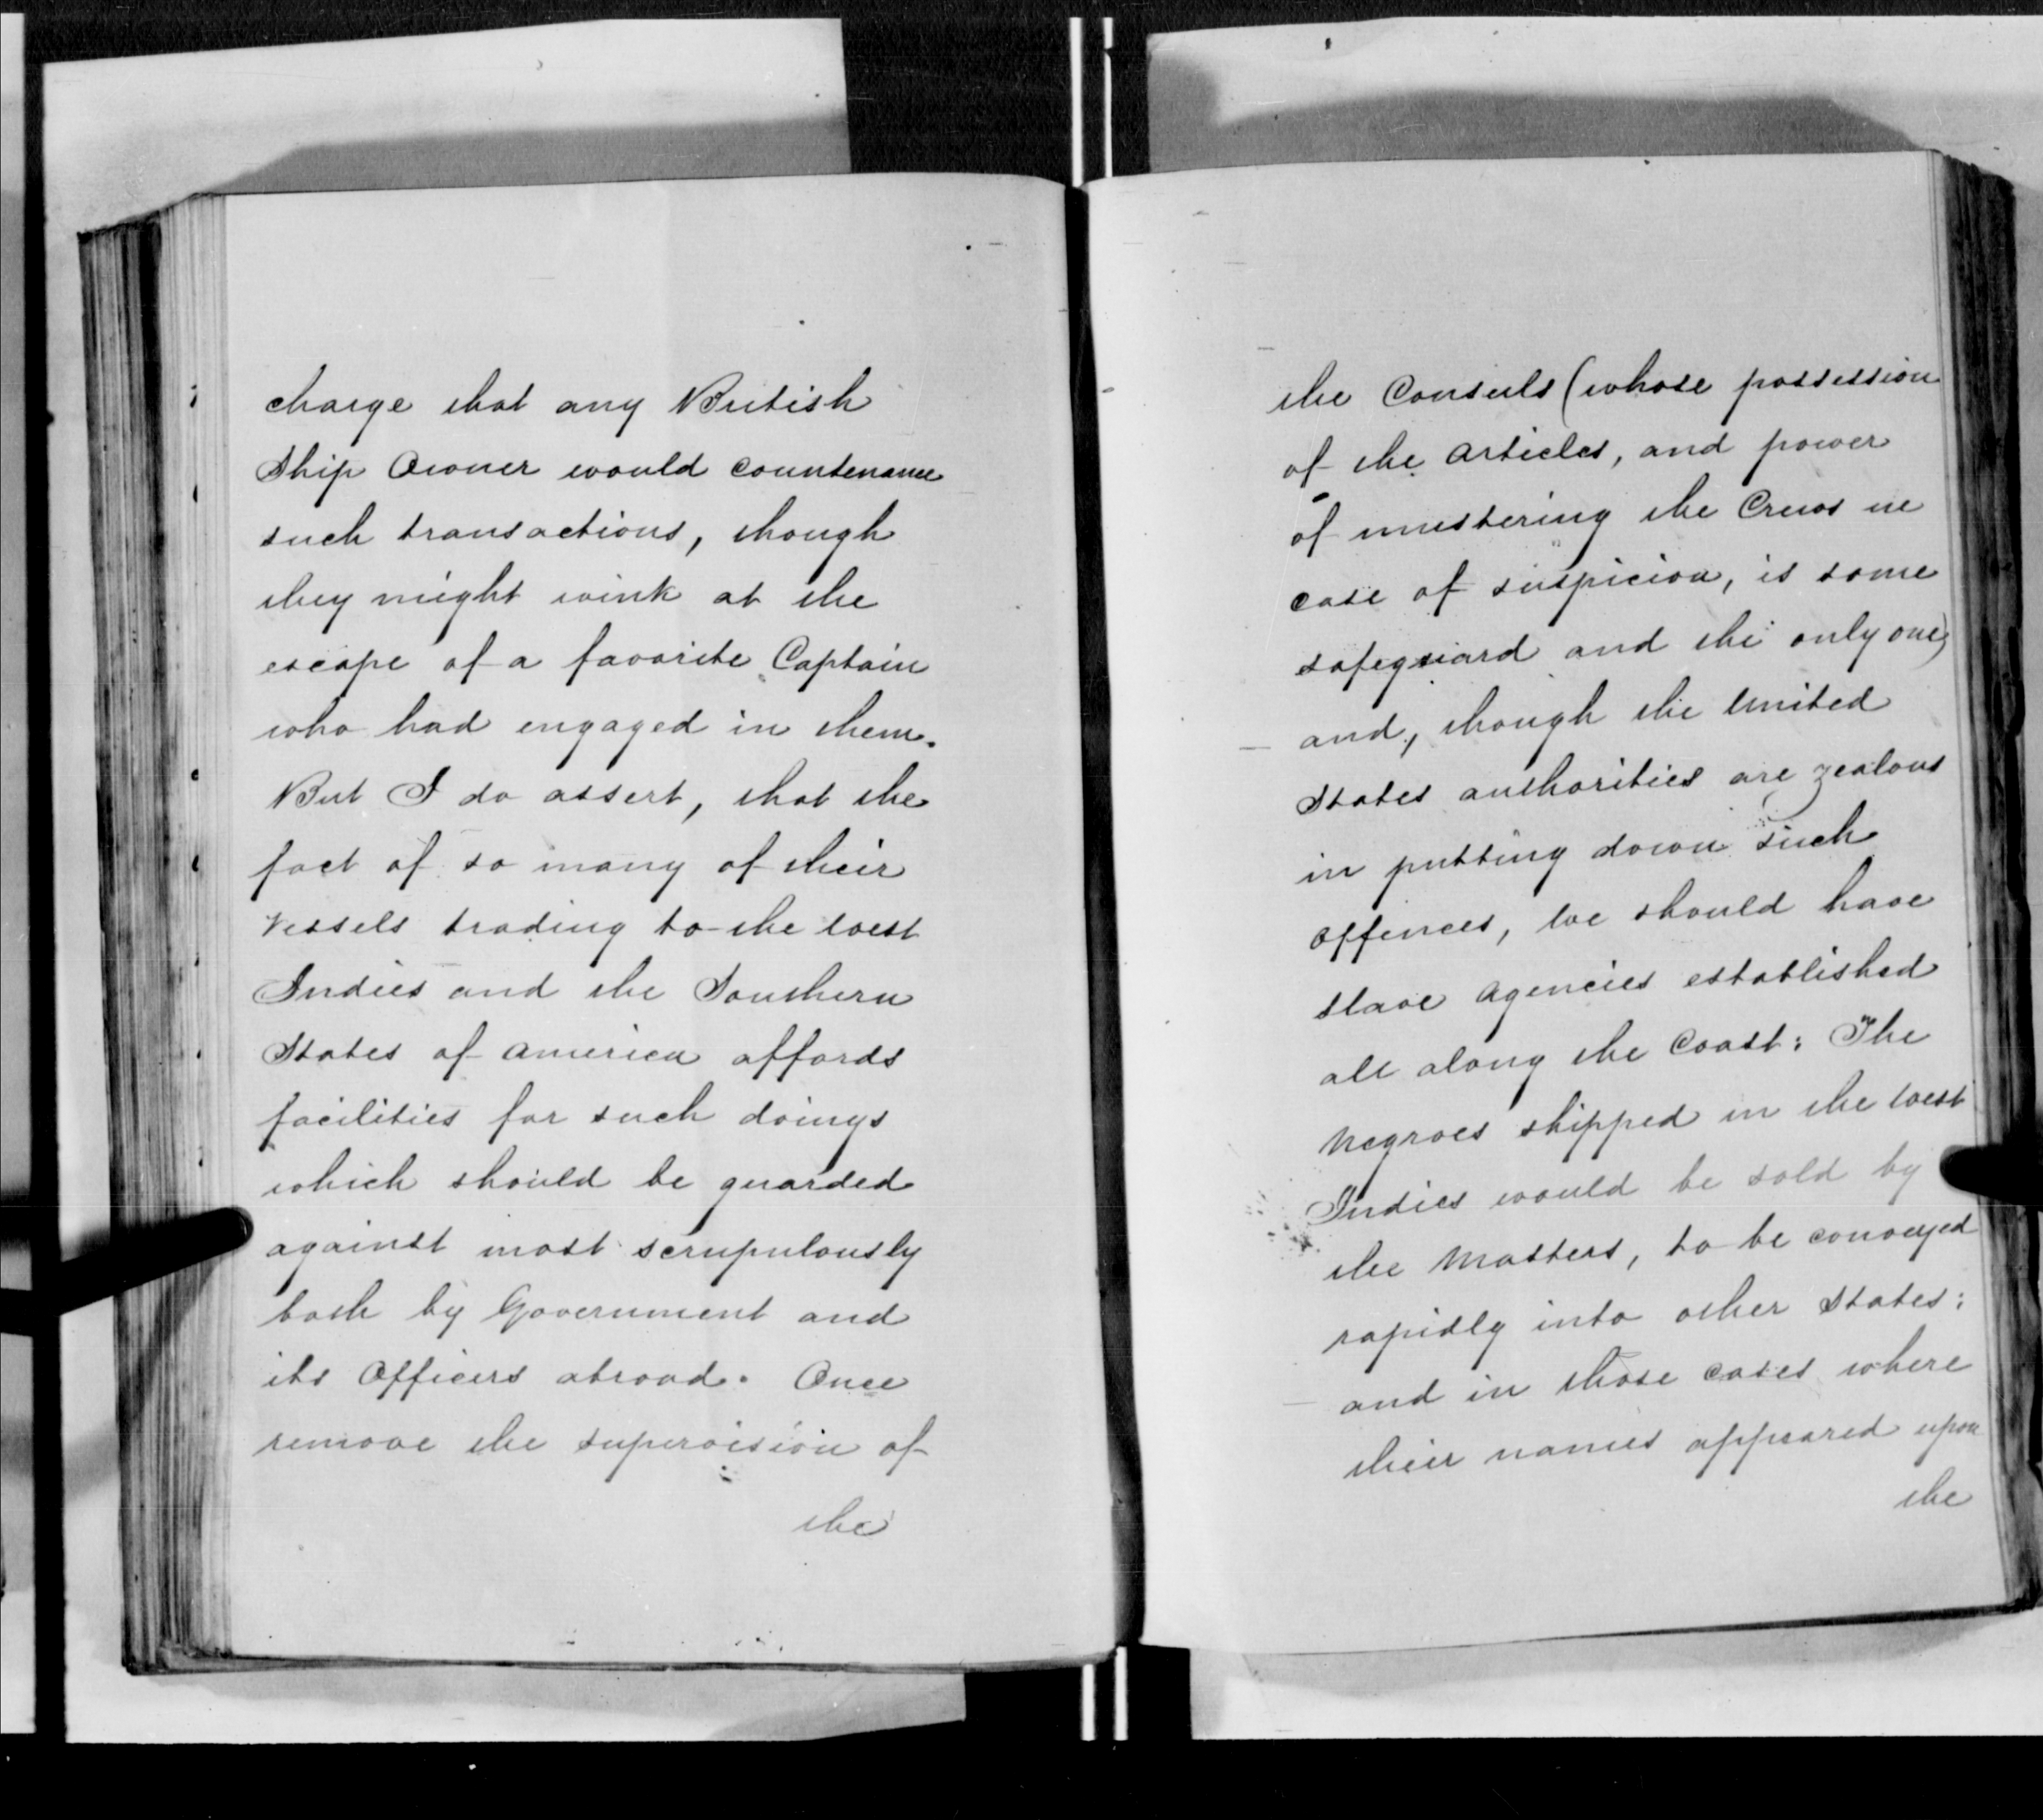 charge that any British
Ship Owner would countenance
such transactions, though
they might wink at the
escape of a favorite Captain
who had engaged in them.
But I do assert, that the
fact of so many of their
Vessels trading to the West
Indies and the Southern
States of America affords
facilities for such doings
which should be guarded
against most scrupulously
both by Government and
its Officers abroad. Once
remove the supervision of
the
the Consuls (whose possession
of the Articles, and power
of mustering the Crews in
case of suspicion, is some
safeguard and the only one)
and, though the United
States authorities are zealous
in putting down such
offences, we should have
slave Agencies established
all along the Coast: The
Negroes shipped in the West
Indies would be sold by
the Masters, to be conveyed
rapidly into other States:
and in those cases where
their names appeared upon
the